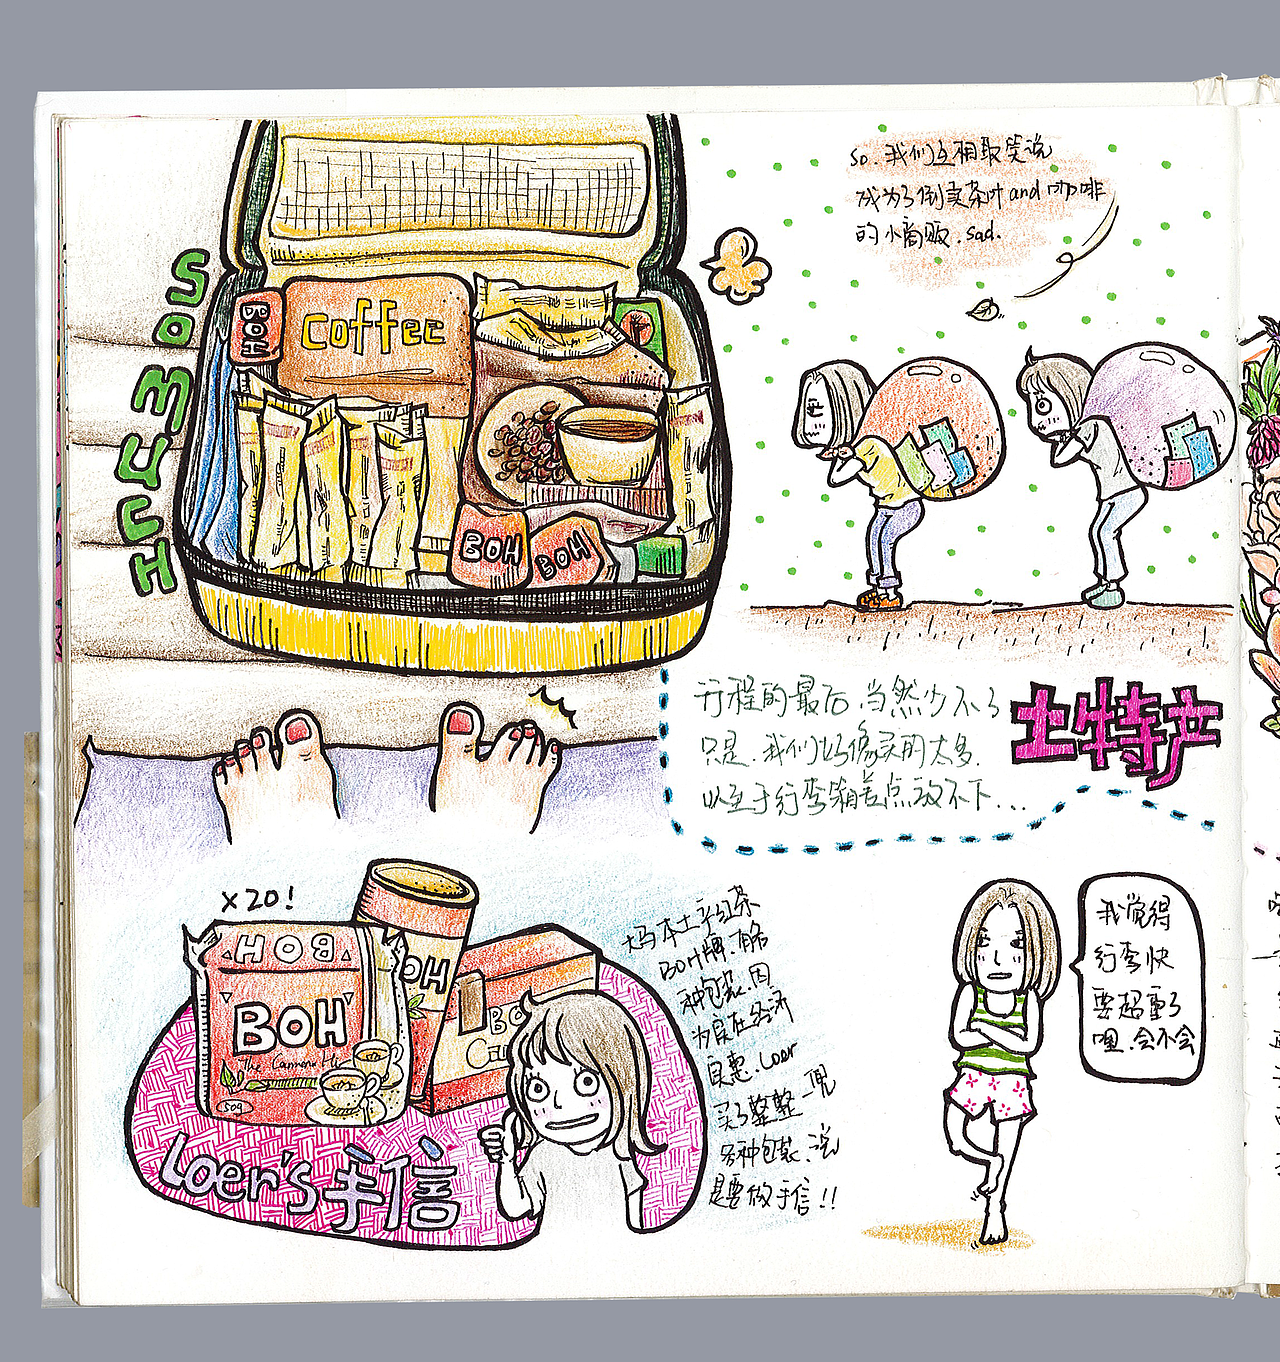 So MUCH
BOH
coffee
BOH
BOH
so.我们互相取笑说
成为了倒卖茶叶and咖啡
的小商贩.sad.
行程的最后.当然少不了
土特产
只是.我们好像买的太多.
以至于行李箱差点放不下...
x20!
BOH
BOH
The Cameron
50g
OH
BO
Loer's手信
大马本土产红茶
BOH牌.有各
种包装.因
为实在经济
实惠.Loer
买了整整一兜
各种包装.说
是要做手信!!
我觉得
行李快
要超重了
哩.会不会